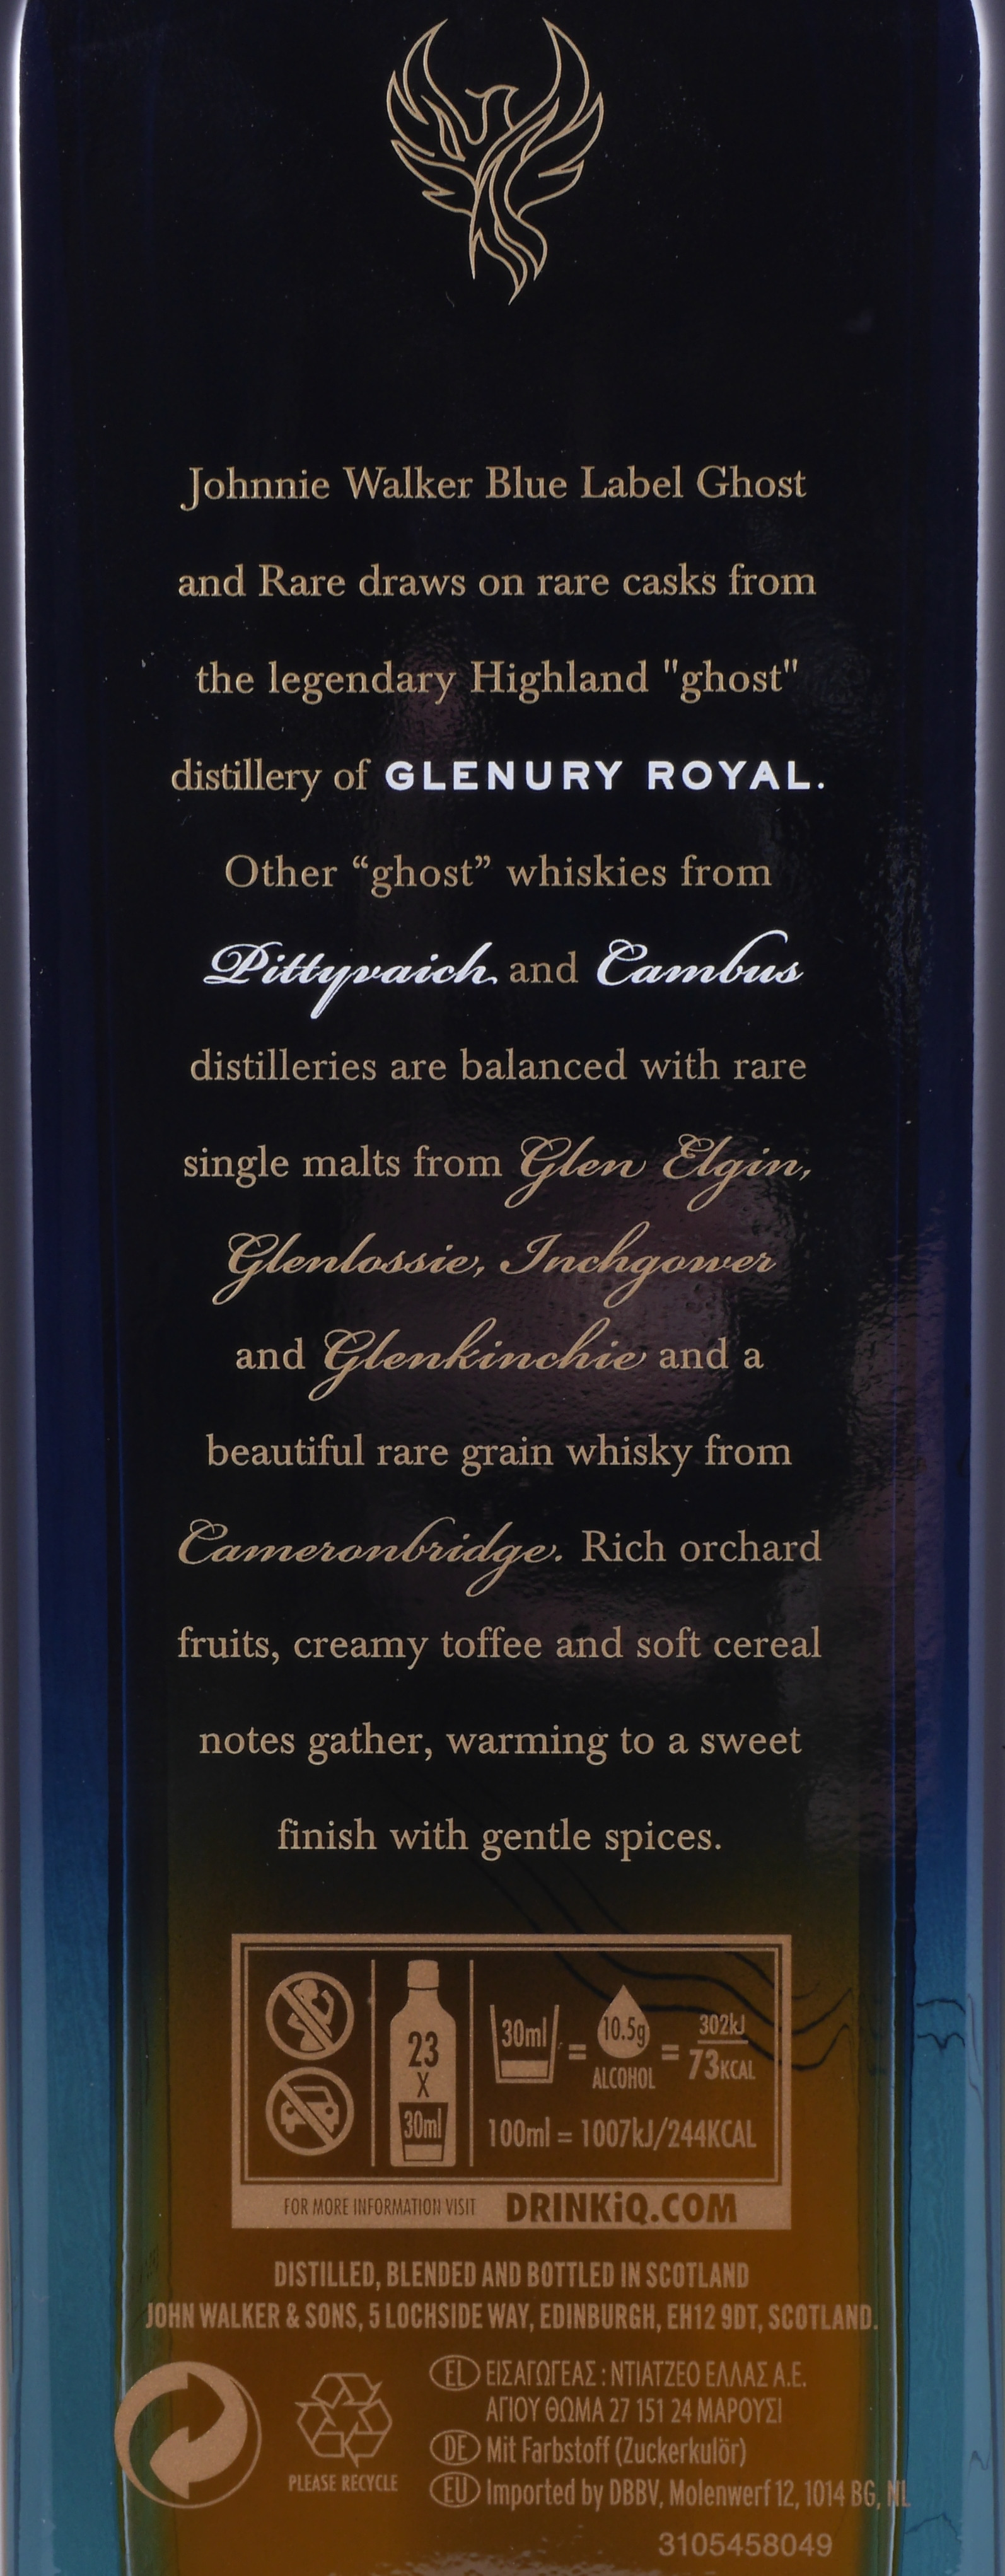 Johnnie Walker Blue Label Ghost
and Rare draws on rare casks from
the legendary Highland "ghost"
distillery of GLENURY ROYAL.
Other “ghost” whiskies from
Pittyvaich and Cambus
distilleries are balanced with rare
single malts from Glen Elgin,
Glenlossie, Inchgower
and Glenkinchie and a
beautiful rare grain whisky from
Cameronbridge. Rich orchard
fruits, creamy toffee and soft cereal
notes gather, warming to a sweet
finish with gentle spices.
23
X
30ml
30ml = 10.5g ALCOHOL = 302kJ 73KCAL
100ml = 1007kJ/244KCAL
FOR MORE INFORMATION VISIT DRINKiQ.COM
DISTILLED, BLENDED AND BOTTLED IN SCOTLAND
JOHN WALKER & SONS, 5 LOCHSIDE WAY, EDINBURGH, EH12 9DT, SCOTLAND.
PLEASE RECYCLE
EL ΕΙΣΑΓΩΓΕΑΣ : ΝΤΙΑΤΖΕΟ ΕΛΛΑΣ Α.Ε.
ΑΓΙΟΥ ΘΩΜΑ 27 151 24 ΜΑΡΟΥΣΙ
DE Mit Farbstoff (Zuckerkulör)
EU Imported by DBBV, Molenwerf 12, 1014 BG, NL
3105458049